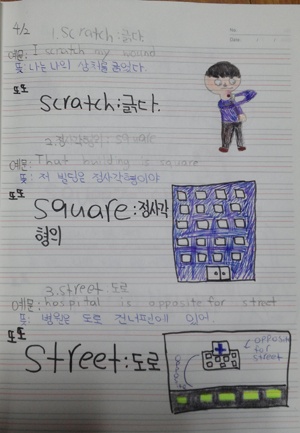 4/2
1. Scratch: 긁다
예문: I scratch my wound
뜻: 나는 나의 상처를 긁었다.
또또
Scratch: 긁다.
2. 정사각형의: square
예문: That building is square
뜻: 저 빌딩은 정사각형이야
또또
square: 정사각
형의
3. street 도로
예문: hospital is opposite for street
뜻: 병원은 도로 건너편에 있어
또또
opposite
for
street
Street: 도로